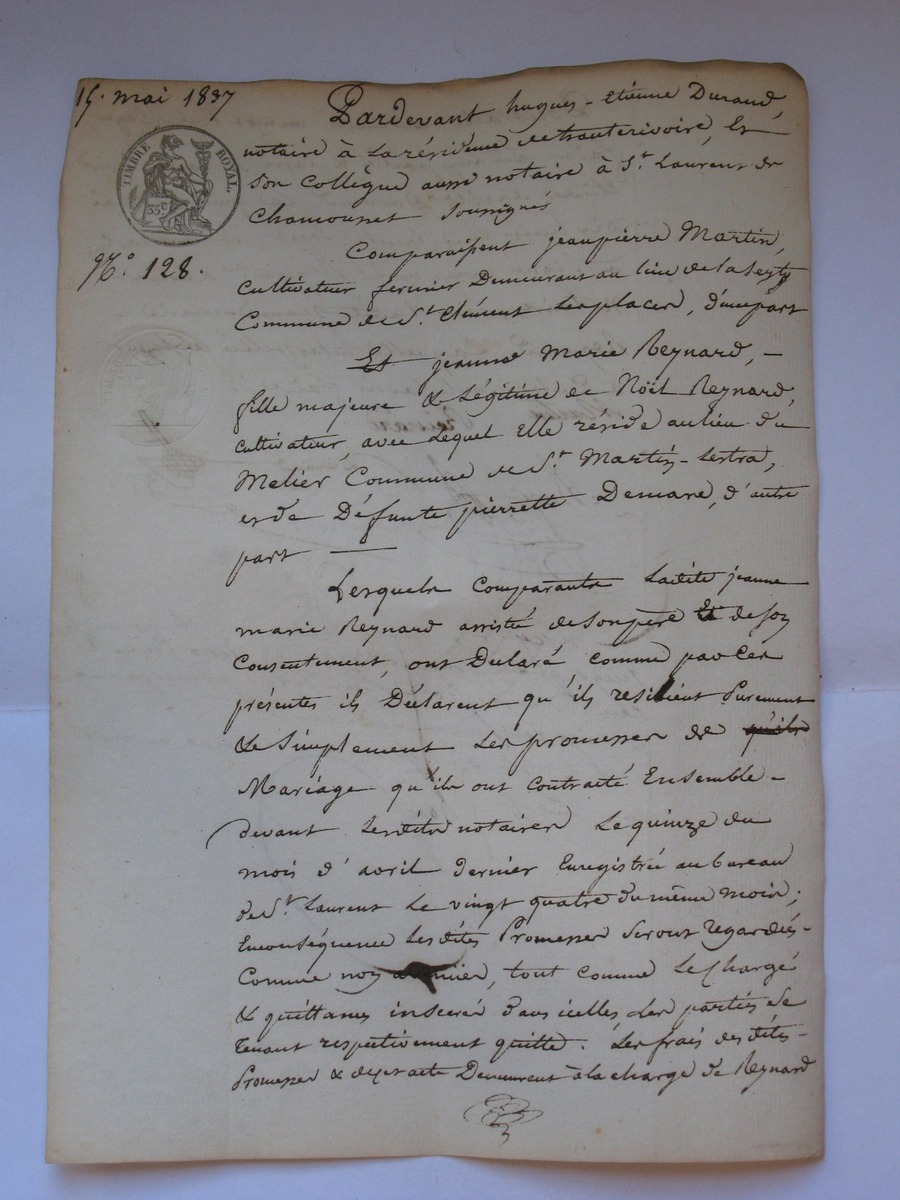 15. mai 1837
TIMBRE ROYAL.
35c
No. 128.
Pardevant hugues-Etienne Durand,
notaire à la résidence de hauterivoire, Et
son Collègue aussi notaire à St. Laurent de
Chamousset soussignés
Comparaissent jeanpierre Martin,
cultivateur fermier Demeurant au lieu de
Commune de St. Clément Les places, d'une part
Et jeanne Marie Reynard, -
fille majeure & Légitime de Noël Reynard,
cultivateur, avec Lequel Elle réside au lieu du
Melier Commune de St. Martin-Lestra,
et de Défunte pierrette Demare, d'autre
part
Lesquels comparants Ladite jeanne
marie Reynard assisté de son père Et de son
Consentement, ont Déclaré comme par Ces
présentes ils Déclarent qu'ils resilient Purement
& Simplement Les promesses de qu'ils
Mariage qu'ils ont contracté Ensemble -
devant Lesdits notaires Le quinze du
mois d'avril dernier Enregistré au bureau
de St. Laurent Le vingt quatre du même mois;
Enconséquence Les dites Promesses seront regardées -
Comme non, tout comme Le chargé
& quittances inserées dans icelles Les parties se
tenant respectivement quitte. Les frais des dites -
Promesses & du présent acte Demeurent à la charge de Reynard